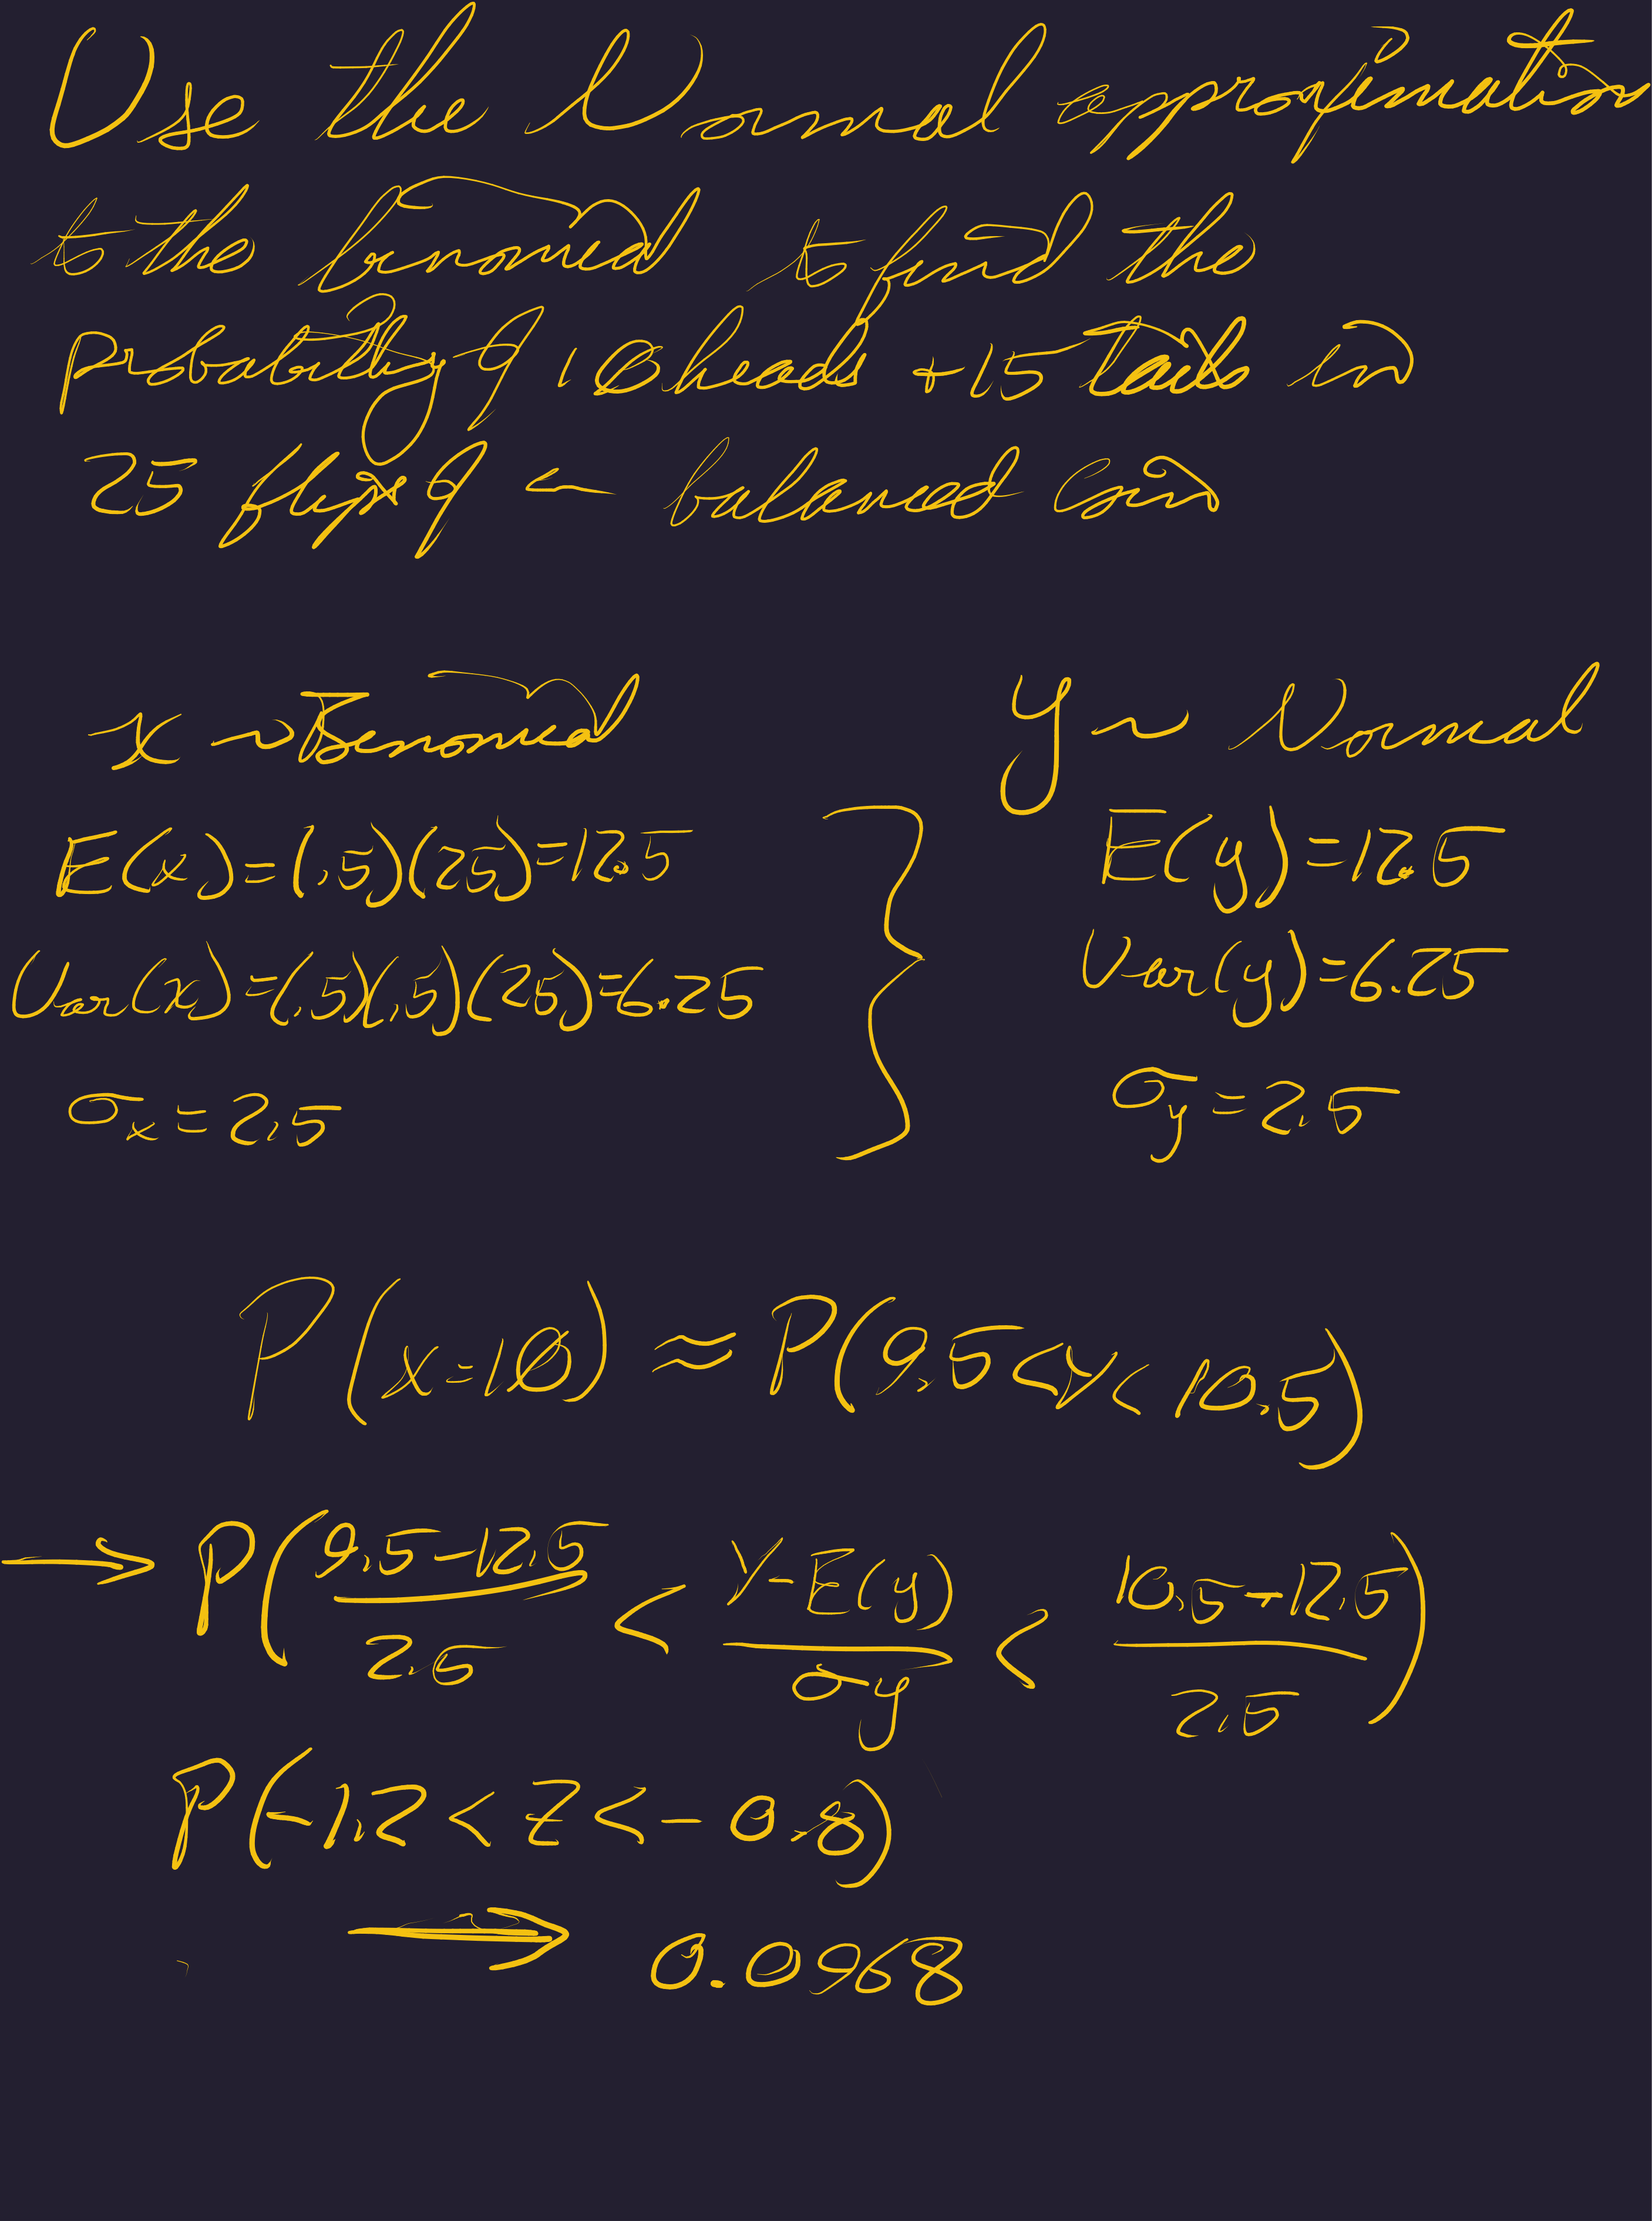 Use the Normal approximation
to the binomial to find the
probability of 10 heads + 15 tails in
25 flips of a balanced coin
x ~ Binomial
Y ~ Normal
E(x) = (.5)(25) = 12.5
E(y) = 12.5
Var(x) = (.5)(.5)(25) = 6.25
Var(y) = 6.25
σx = 2.5
σy = 2.5
P(x=10) ≈ P(9.5 < y < 10.5)
→ P((9.5 - 12.5)/2.5 < (y - E(y))/σy < (10.5 - 12.5)/2.5)
P(-1.2 < Z < -0.8)
⇒ 0.0968